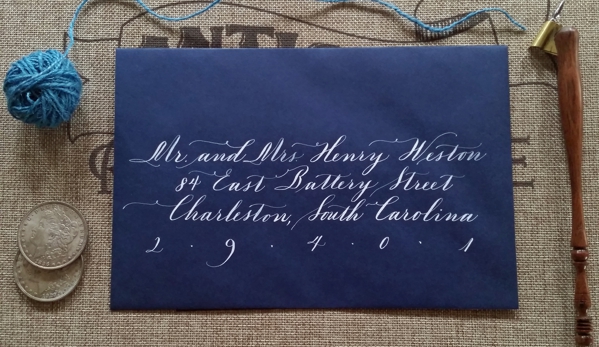 Mr. and Mrs. Henry Weston
84 East Battery Street
Charleston, South Carolina
2 · 9 · 4 · 0 · 1